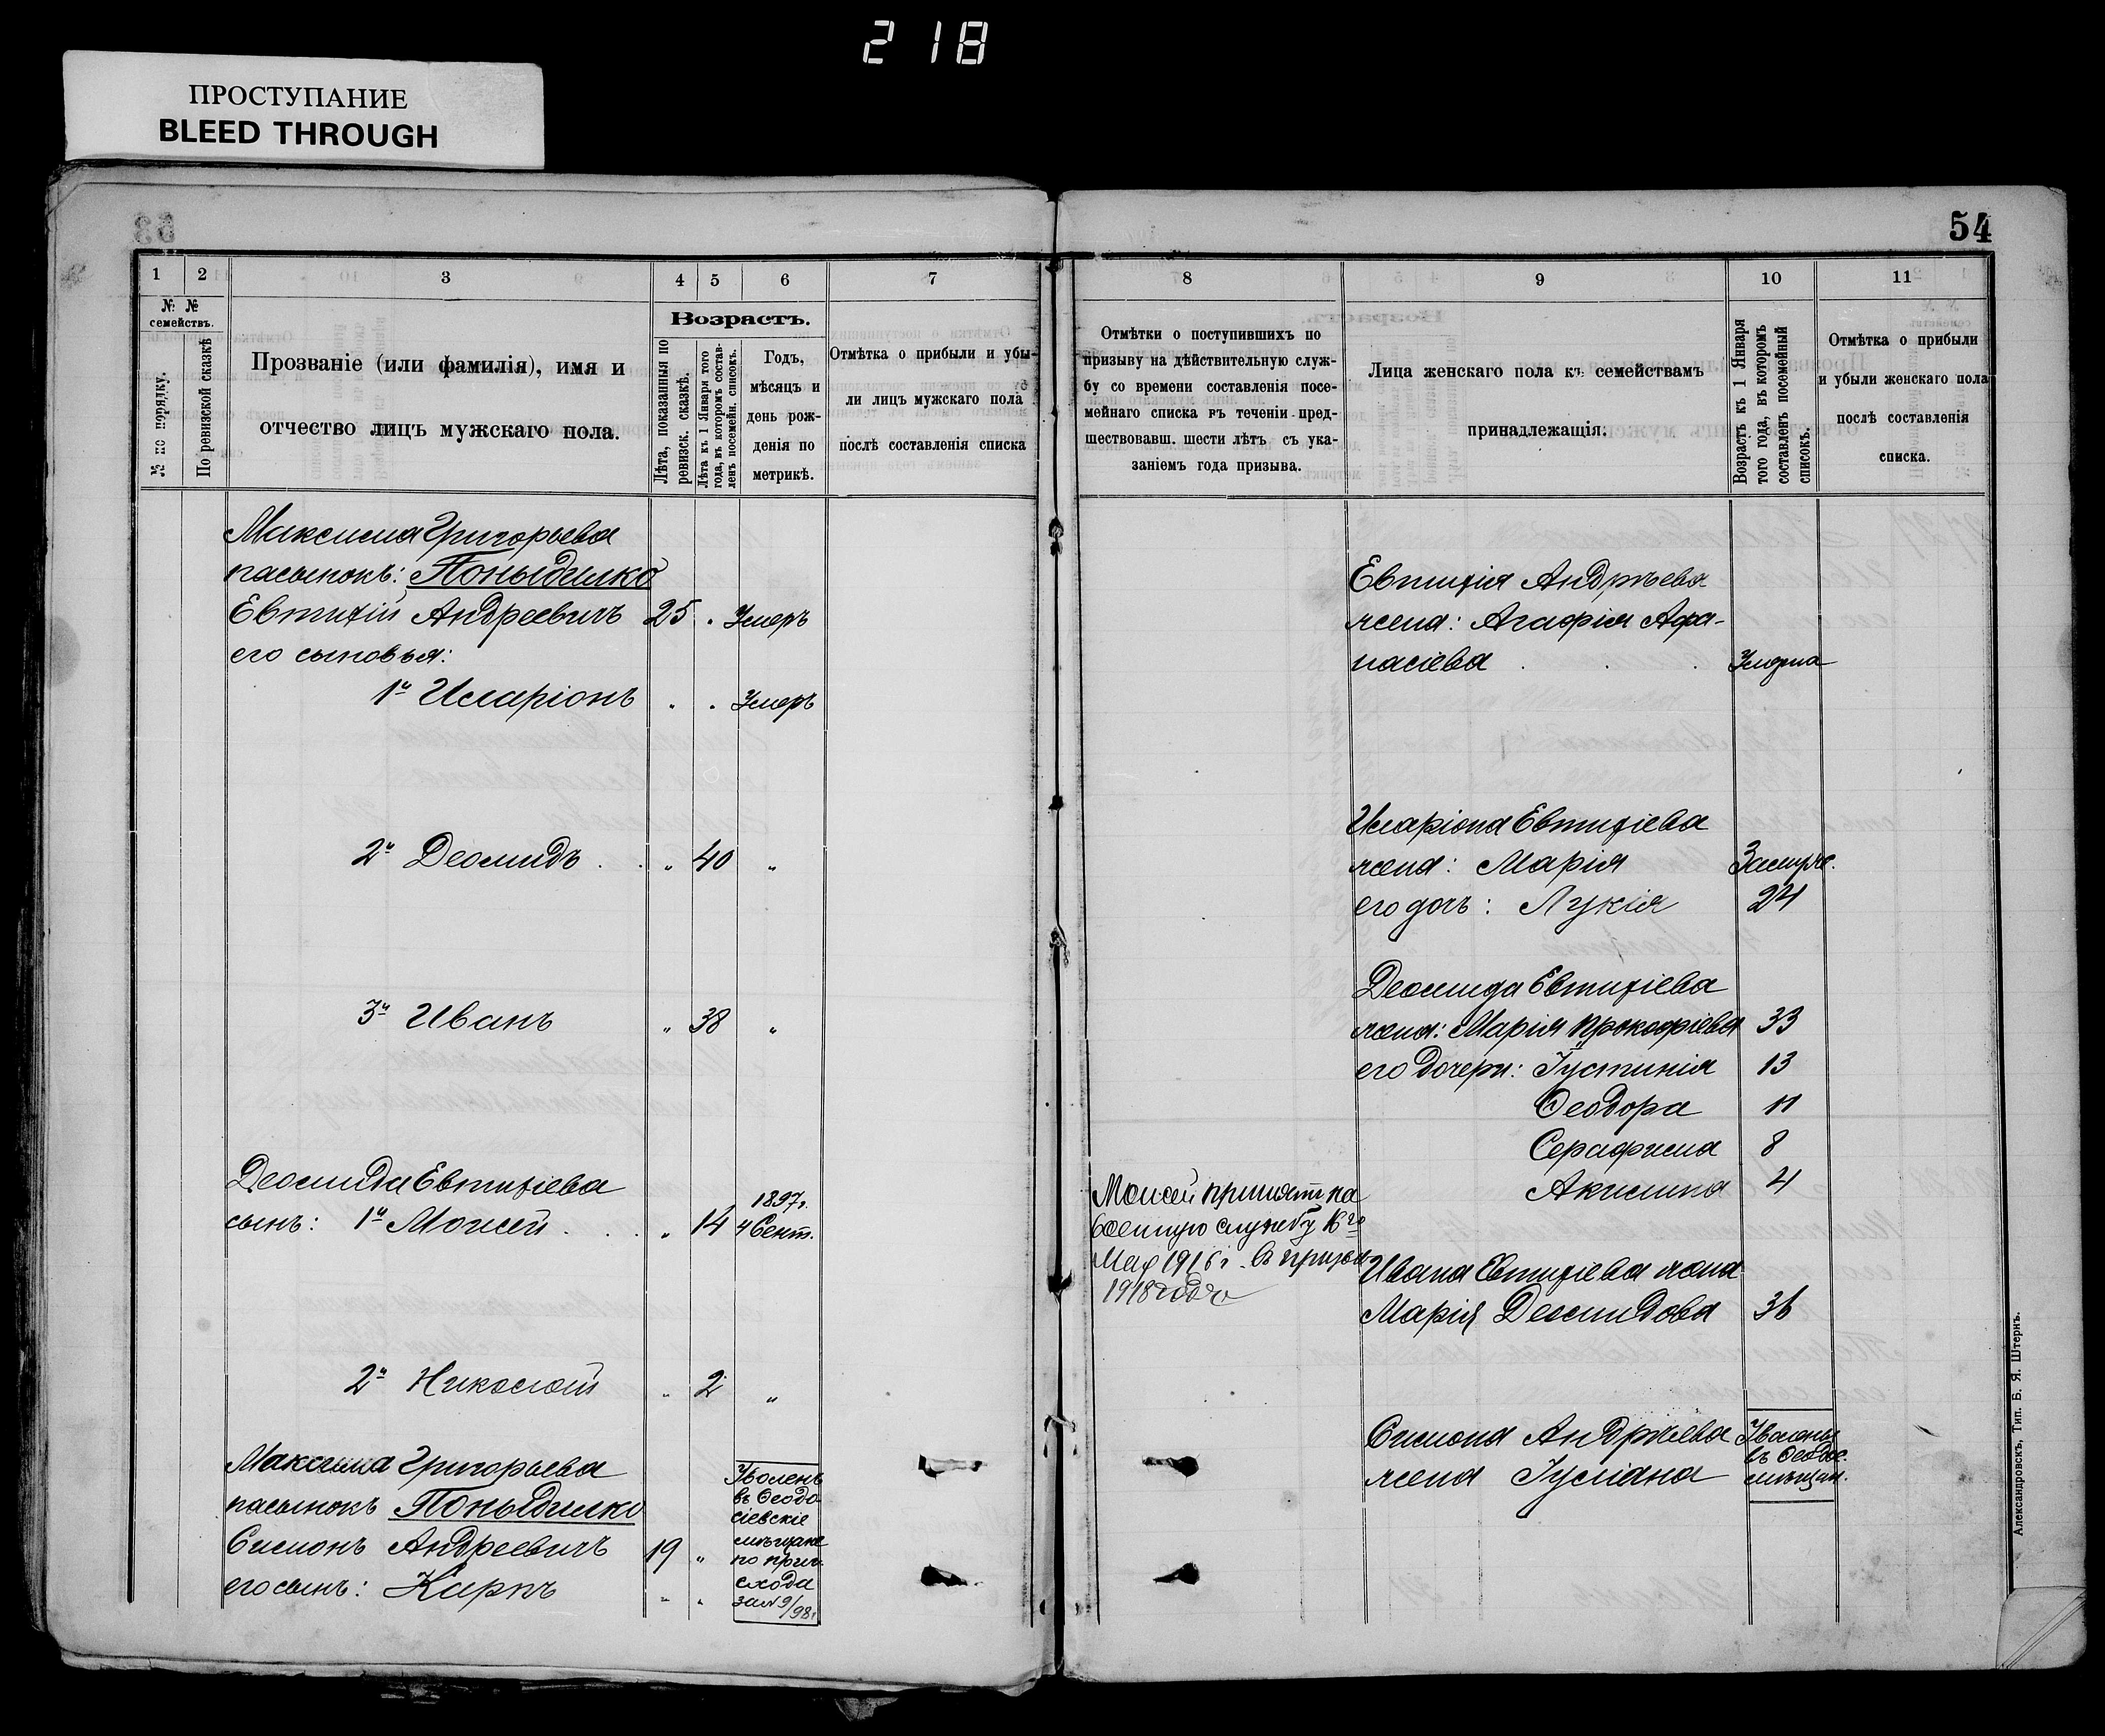 218
ПРОСТУПАНИЕ
BLEED THROUGH
53
1 2 3 4 5 6 7
№ № семействъ.
№ по порядку.
По ревизской сказкѣ
Прозваніе (или фамилія), имя и
отчество лицъ мужскаго пола.
Возрастъ.
Лѣта, показанныя по
ревизск. сказкѣ.
Лѣта къ 1 Января того
года, въ которомъ состав-
ленъ посемейн. списокъ.
Годъ,
мѣсяцъ и
день рож-
денія по
метрикѣ.
Отмѣтка о прибыли и убы-
ли лицъ мужскаго пола
послѣ составленія списка
Максима Григорьева
пасынокъ: Поныдилко
Евтихій Андреевичъ 25 " Умеръ
его сыновья:
1й Иларіонъ " " Умеръ
2й Деомидъ . . " 40 "
3й Иванъ " 38 "
Деомида Евтихіева
сынъ: 1й Моисей . . . " 14 1897г. 4 Сент.
2й Николай " 2 "
Максима Григорьева
пасынокъ Поныдилко
Симонъ Андреевичъ 19 "
его сынъ: Карпъ " "
Уволенъ
въ Ѳеодо
сіевскіе
мѣщане
по приг.
схода
за № 9/98г
54
8 9 10 11
Отмѣтки о поступившихъ по
призыву на дѣйствительную служ-
бу со времени составленія посе-
мейнаго списка въ теченіи пред-
шествовавш. шести лѣтъ съ ука-
заніемъ года призыва.
Лица женскаго пола къ семействамъ
принадлежащія.
Возрастъ къ 1 Января
того года, въ которомъ
составленъ посемейный
списокъ.
Отмѣтка о прибыли
и убыли женскаго пола
послѣ составленія
списка.
Евтихія Андрѣева
жена: Агафія Афа-
насіева . . . Умерла
Иларіона Евтихіева
жена: Марія Замуже.
его дочь: Лукія 24
Деомида Евтихіева
жена: Марія Прокофіева 33
его дочери: Іустинія 13
Ѳеодора 11
Серафима 8
Акилина 4
Моисей принят на
военную службу 16го
Мая 1916г. в призыв
1918 года
Ивана Евтихіева жена
Марія Деомидова 36
Симона Андрѣева
жена Іуліана
Уволены
въ Ѳеодос.
мѣщан.
Александровскъ, Тип. Б. Я. Штернъ.